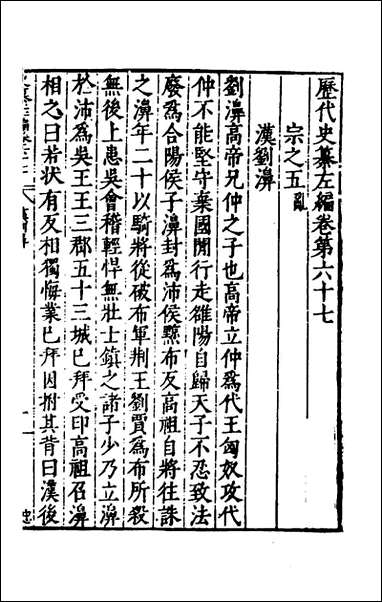 歷代史纂左編卷第六十七
宗之五亂
漢劉濞
劉濞高帝兄仲之子也高帝立仲爲代王匈奴攻代
仲不能堅守棄國閒行走雒陽自歸天子不忍致法
廢爲合陽侯子濞封爲沛侯黥布反高祖自將往誅
之濞年二十以騎將從破布軍荆王劉賈爲布所殺
無後上患吳會稽輕悍無壯士鎮之諸子少乃立濞
於沛爲吳王王三郡五十三城已拜受印高祖召濞
相之曰若狀有反相獨悔業已拜因拊其背曰漢後